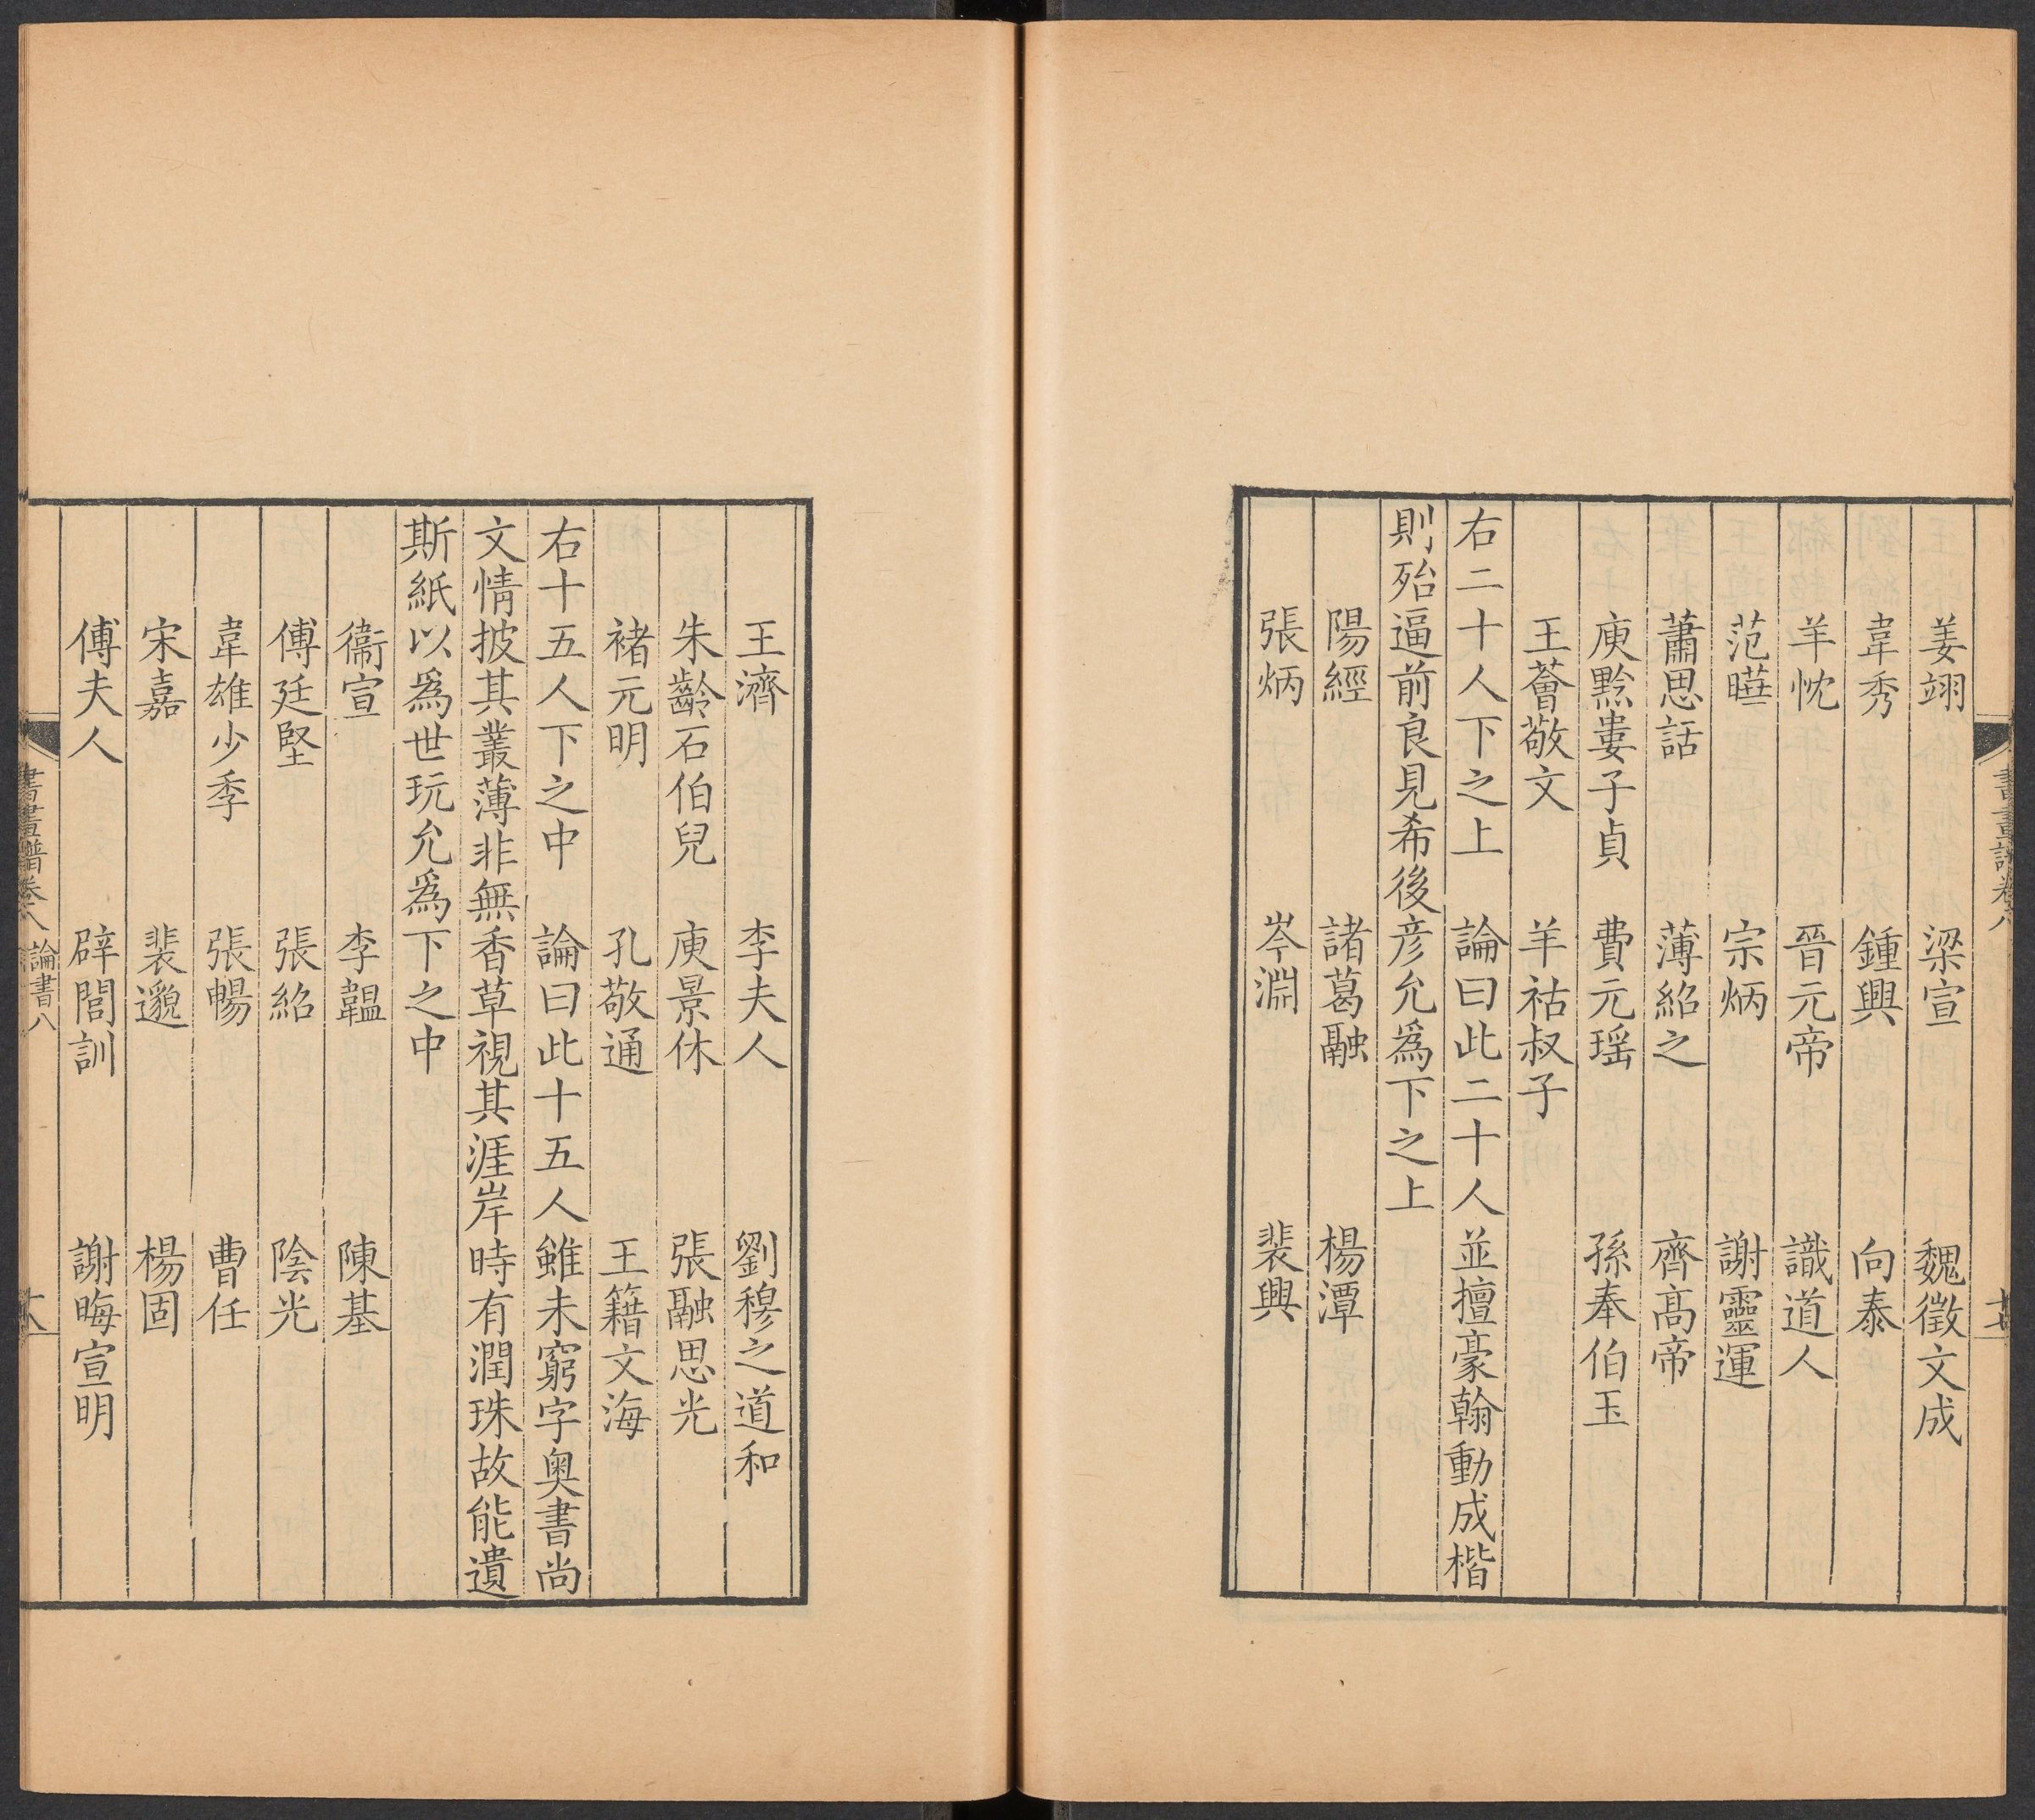 姜翊 梁宣 魏徵文成
韋秀 鍾興 向泰
羊忱 晉元帝 識道人
范曄 宗炳 謝靈運
蕭思話 薄紹之 齊髙帝
庾黔婁子貞 費元瑶 孫奉伯玉
王薈敬文 羊祜叔子
右二十人下之上 論曰此二十人並擅豪翰動成楷
則殆逼前良見希後彦允爲下之上
陽經 諸葛融 楊潭
張炳 岑淵 裴興
王濟 李夫人 劉穆之道和
朱齡石伯兒 庾景休 張融思光
褚元明 孔敬通 王籍文海
右十五人下之中 論曰此十五人雖未窮字奥書尚
文情披其叢薄非無香草視其涯岸時有潤珠故能遺
斯紙以爲世玩允爲下之中
衞宣 李韞 陳基
傅廷堅 張紹 陰光
韋雄少季 張暢 曹任
宋嘉 裴邈 楊固
傅夫人 辟閭訓 謝晦宣明
書畫譜卷八 論書八